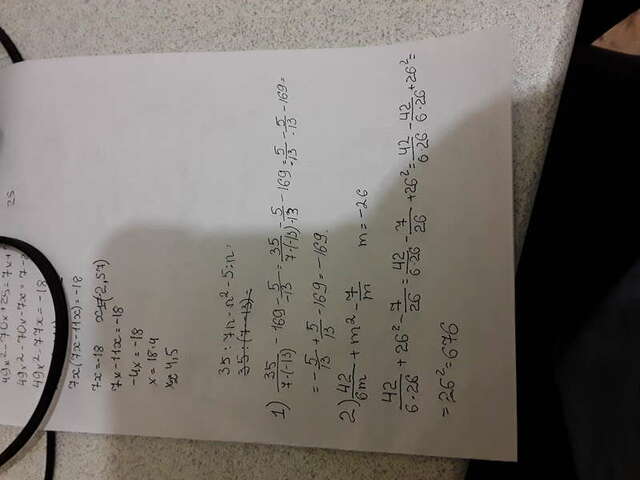 25
49x²-70x+25=7x+
49x²-70x-7x=7-
49x²-77x=-18
7x(7x-11x)=-18
7x=-18
7x-11x=-18
-4x=-18
x=18:4
x=4,5
35:7n-n²-5:n=
1) 35/(7·(-13)) - 169 - 5/-13 = 35/(7·(-13)) - 5/-13 - 169 = 5/-13 - 5/-13 - 169=
=-5/13+5/13-169=-169.
2) 42/6m + m² - 7/m m=-26
42/(6·26) + 26² - 7/26 = 42/(6·26) - 7/26 + 26² = 42/(6·26) - 42/(6·26) + 26² =
=26²=676